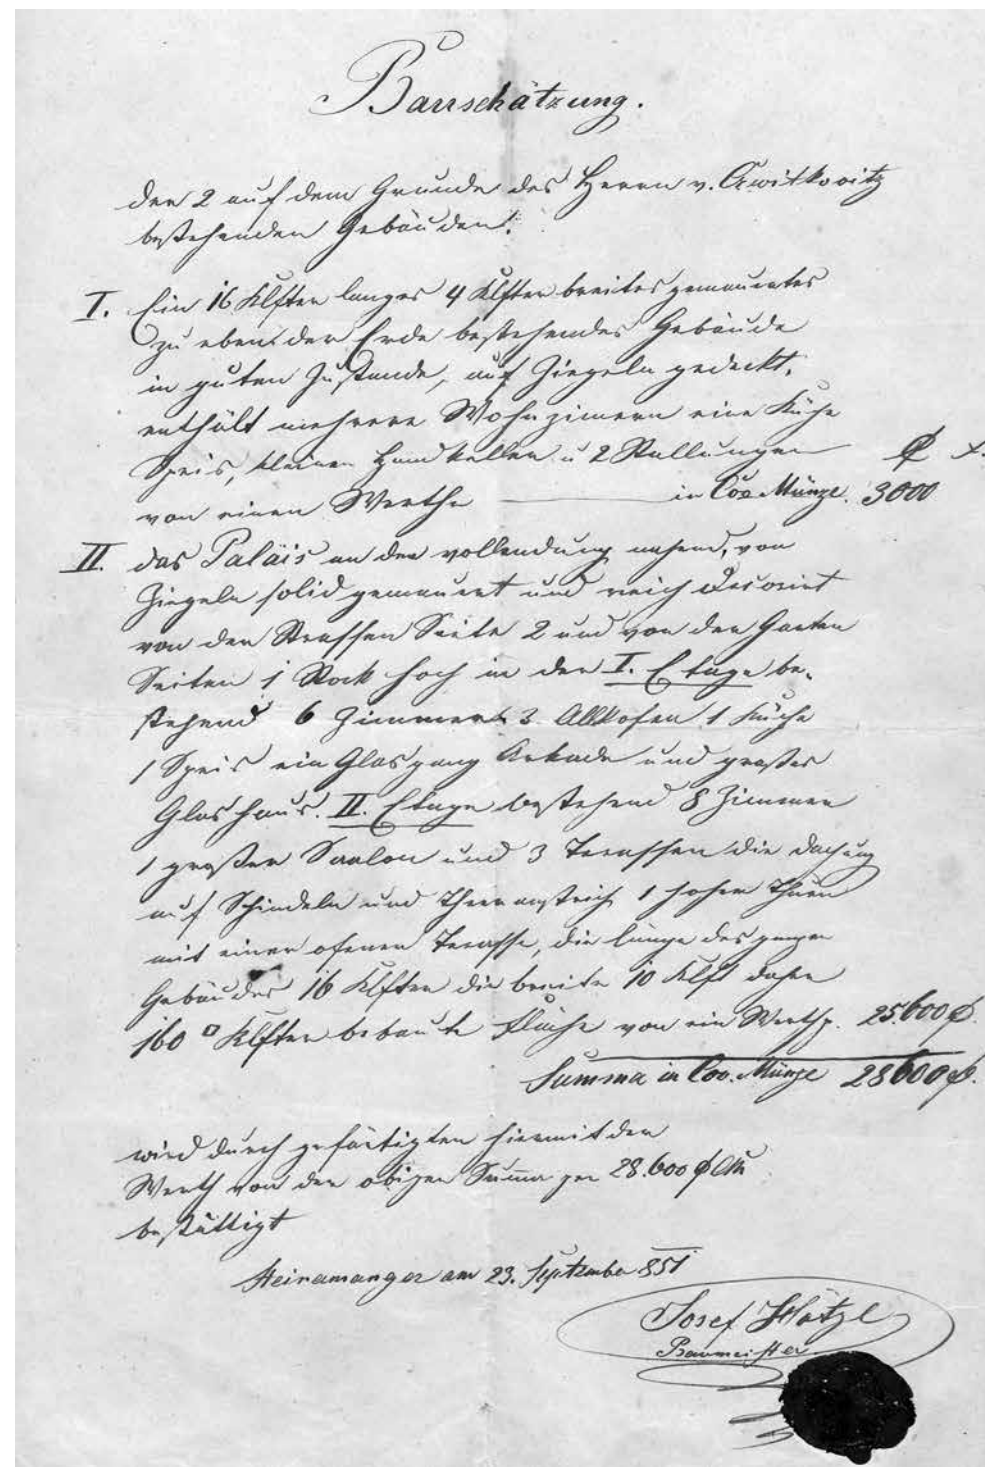 Bauschätzung.
der 2 auf dem Grunde des Herrn v. Cwitkovitz
bestehenden Gebäuden:
I. Ein 16 Klfter langes 4 Klfter breites gemauertes
zu ebener Erde bestehendes Gebäude
in guten Zustande, auf Ziegeln gedeckt,
enthält mehrere Wohnzimern eine Küche
Speis, kleinen Handkeller u 2 Stallungen
von einen Werthe in Con. Münze. 3000
II. das Paläis an der vollendung nahend, von
Ziegeln solid gemauert und reich decorirt
von der Strassen Seite 2 und von der Garten
Seiten 1 Stock hoch in der I. Etage be-
stehend 6 Zimmern 3 Allkofen 1 Küche
1 Speis ein Glasgang Arkade und großes
Glashaus. II. Etage bestehend 8 Zimmern
1 großer Saalon und 3 Terassen die dachung
auf Schindeln und Theeranstrich 1 hoher Thurm
mit einer ofenen Terasse, die länge des ganzen
Gebäudes 16 Klfter die breite 10 Klft daher
160 □ Klfter bebaute Fläche von ein Werthe. 25.600 f.
Summa in Con. Münze 28600 f.
wird durch gefärtigten hiermit der
Werth von der obigen Suma per 28.600 f CM
bestättigt
Steinamanger am 23. September 851
Josef Hätzl
Baumeister